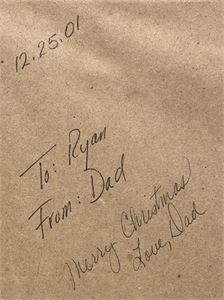 12.25.01
To: Ryan
From: Dad
Merry Christmas
Love, Dad